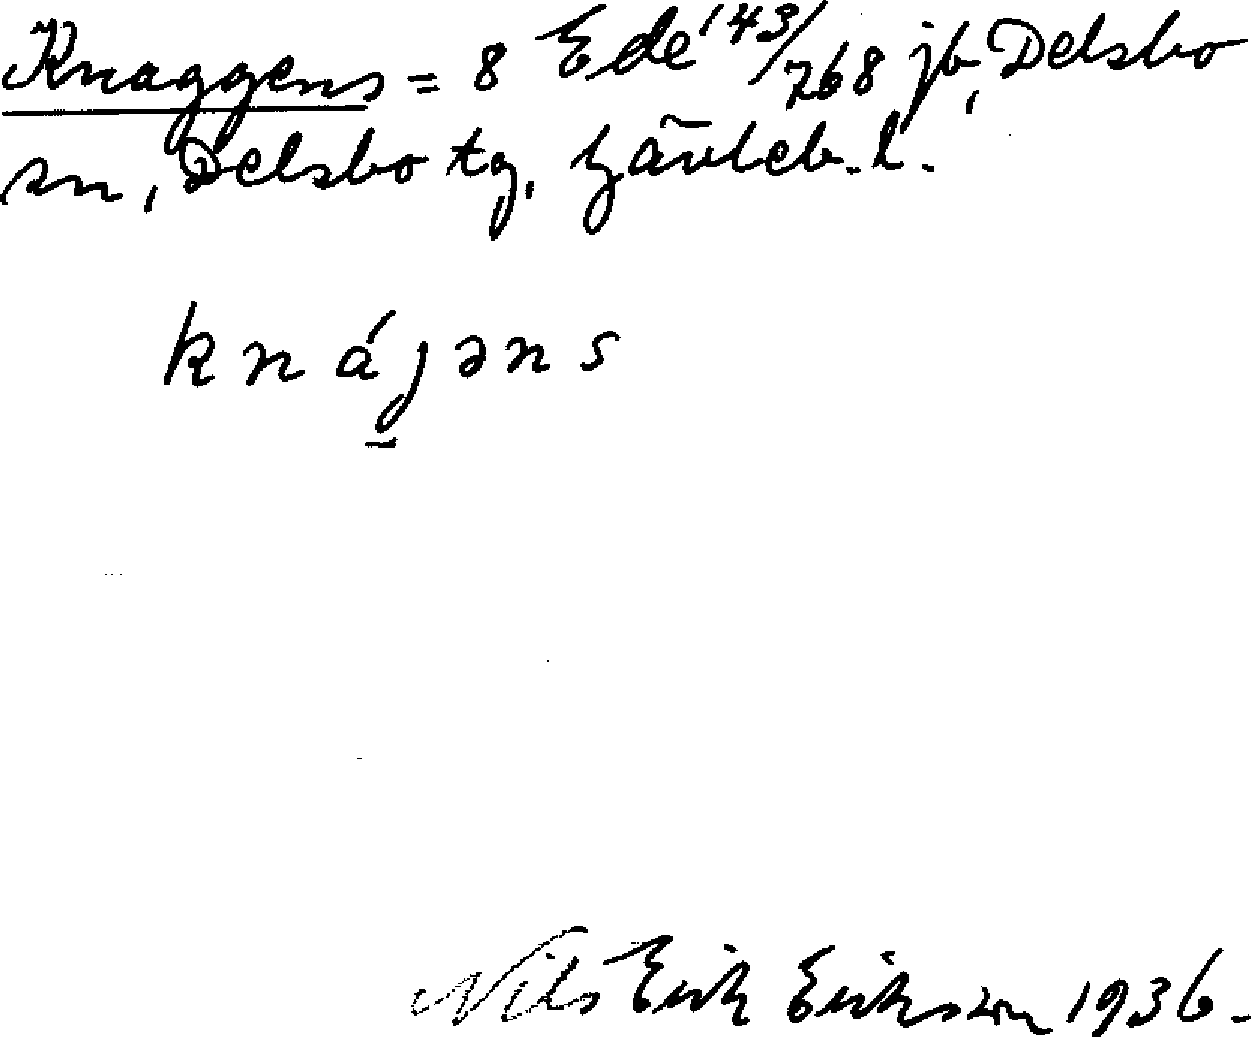 Knaggens = 8 Ede 143/768 jb, Delsbo
sn, Delsbo tg, Gävleb. l.
knájəns
Nils Erik Eriksson 1936.